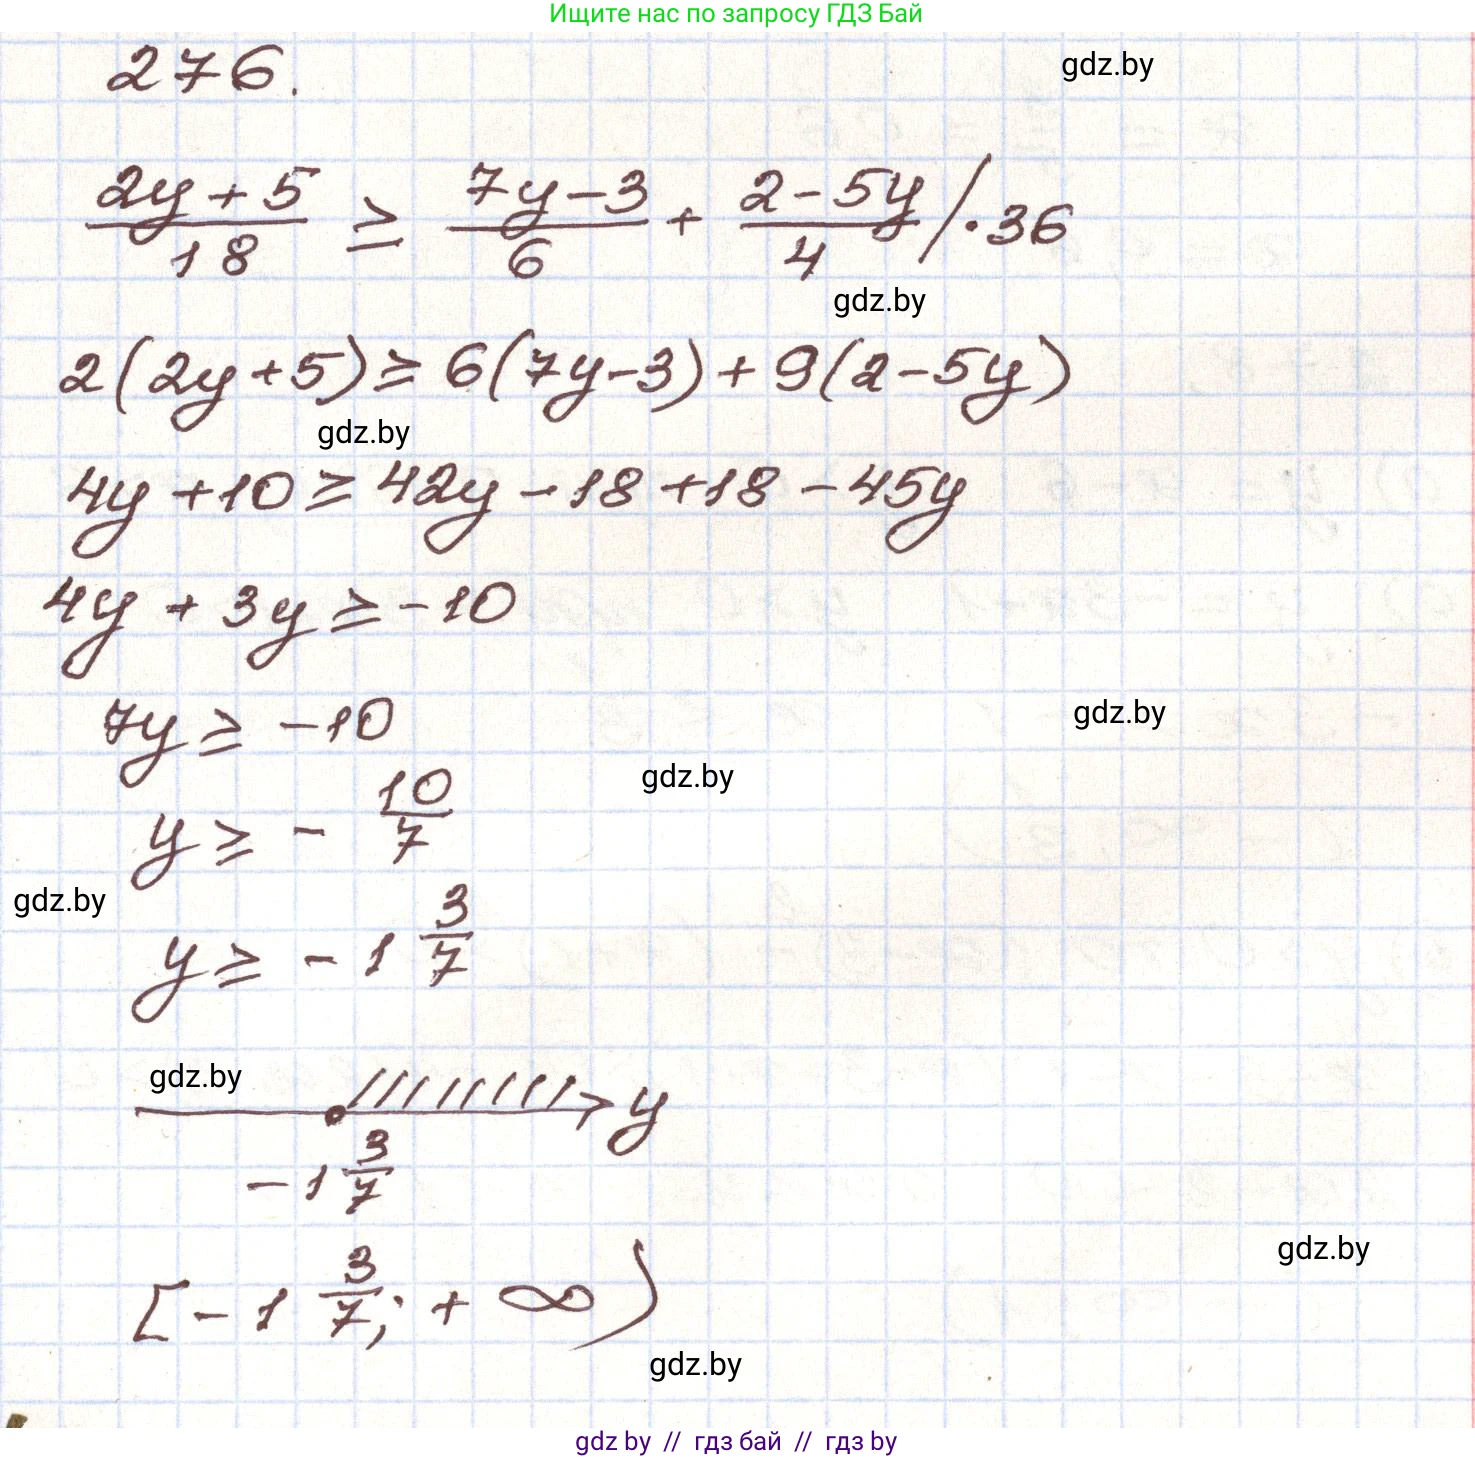 Ищите нас по запросу ГДЗ Бай
276.
gdz.by
(2y + 5)/18 ≥ (7y - 3)/6 + (2 - 5y)/4 / · 36
gdz.by
2(2y + 5) ≥ 6(7y - 3) + 9(2 - 5y)
gdz.by
4y + 10 ≥ 42y - 18 + 18 - 45y
4y + 3y ≥ -10
7y ≥ -10
gdz.by
gdz.by
y ≥ - 10/7
gdz.by
y ≥ - 1 3/7
gdz.by
y
- 1 3/7
gdz.by
[- 1 3/7; + ∞)
gdz.by
gdz by // гдз бай // гдз by